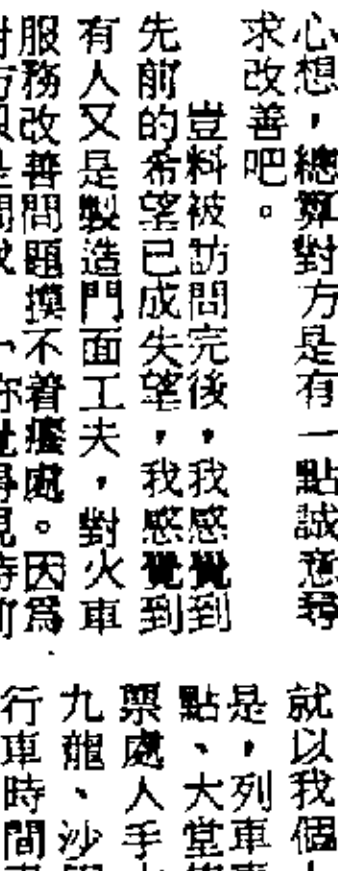 心想，總算對方是有一點誠意尋
求改善吧。
豈料被訪問完後，我感覺到
先前的希望已成失望，我感覺到
有人又是製造門面工夫，對火車
服務改善問題摸不着癢處。因爲
就以我個
是，列車
點、大堂
票處人手
九龍、沙
行車時間